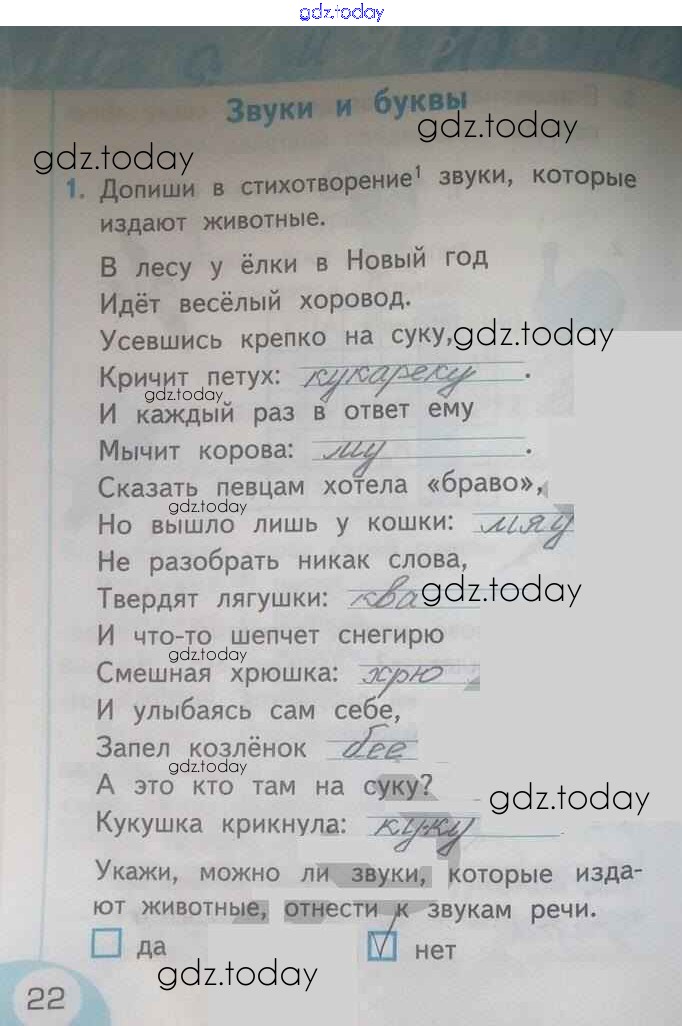 gdz.today
Звуки и буквы
gdz.today
gdz.today
1. Допиши в стихотворение¹ звуки, которые
издают животные.
В лесу у ёлки в Новый год
Идёт весёлый хоровод.
Усевшись крепко на суку, gdz.today
Кричит петух: кукареку.
gdz.today
И каждый раз в ответ ему
Мычит корова: му.
Сказать певцам хотела «браво»,
gdz.today
Но вышло лишь у кошки: мяу
Не разобрать никак слова,
Твердят лягушки: ква gdz.today
И что-то шепчет снегирю
gdz.today
Смешная хрюшка: хрю.
И улыбаясь сам себе,
Запел козлёнок бее
gdz.today
А это кто там на суку?
gdz.today
Кукушка крикнула: куку
Укажи, можно ли звуки, которые изда-
ют животные, отнести к звукам речи.
да V нет
gdz.today
22